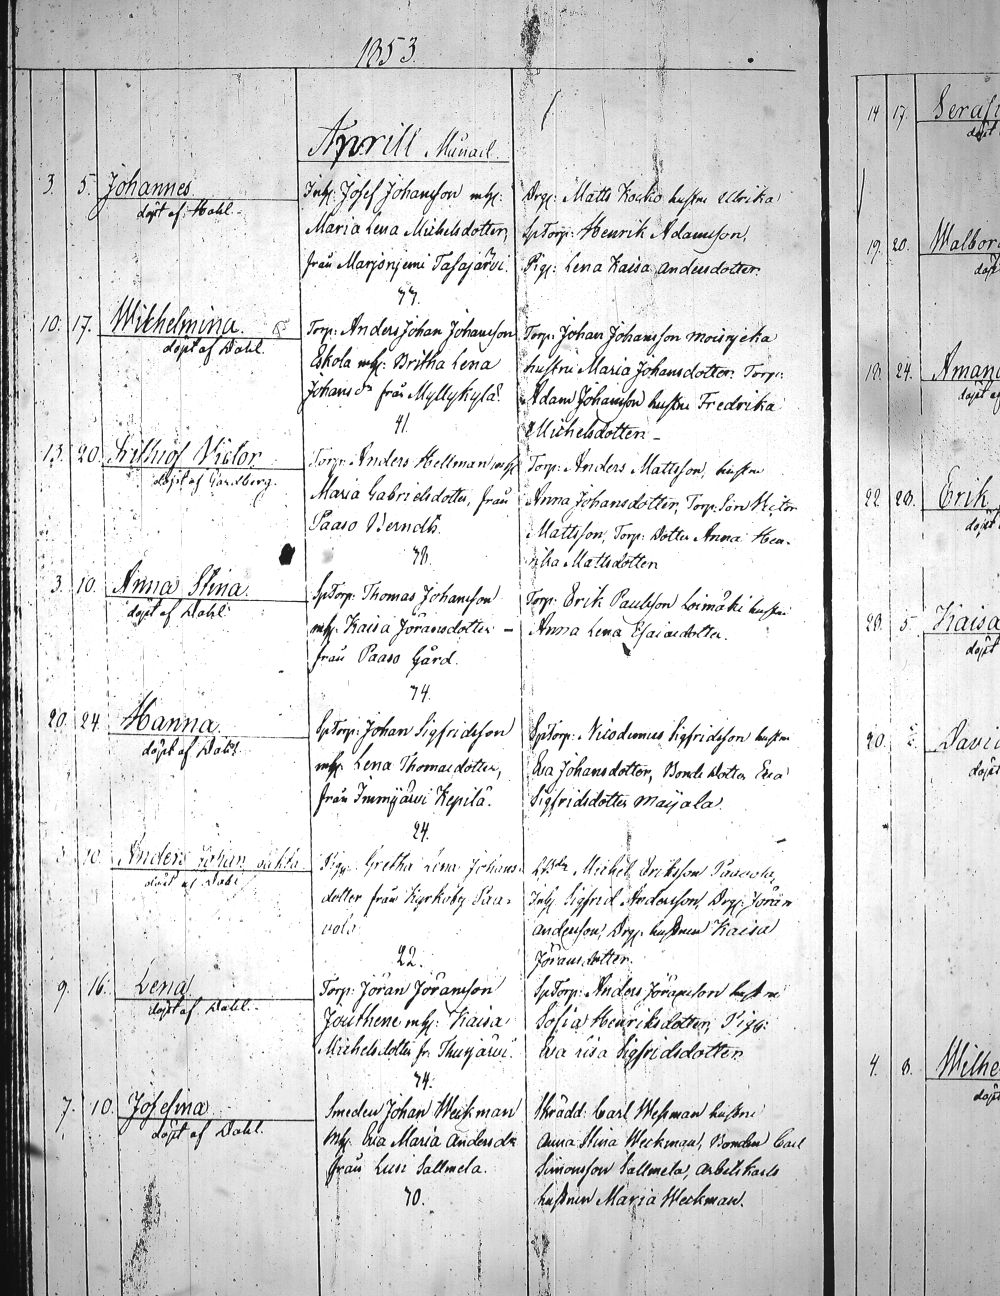 1853
Aprill Månad.
3. 5. Johannes
döpt af Dahl.
Inh: Josef Johansson mh:
Maria Lena Michelsdotter,
från Marjonjemi Tasajärvi.
Drg: Matts Kouho hustru Ulrika
SpTorp: Henrik Adamsson,
Pig: Lena Kaisa Andersdotter.
10. 17. Wilhelmina.
döpt af Dahl.
Torp: Anders Johan Johansson
Eskola mh: Britha Lena
Johansdr från Myllykylä.
41.
Torp: Johan Johansson
hustru Maria Johansdotter. Torp:
Adam Johansson hustru Fredrika
Michelsdotter
13. 20. Frithiof Victor
döpt af
Torp: Anders Hellman mh:
Maria Gabrielsdotter, från
Paaso Berndts.
78.
Torp: Anders Mattsson, hustru
Anna Johansdotter, Torp: Son Victor
Mattsson, Torp: Dotter Anna Hen-
rika Mattsdotter
3. 10. Anna Stina.
döpt af Dahl
SpTorp: Thomas Johansson
mh: Kaisa Jöransdotter –
från Paaso Gård.
74.
Torp: Erik Paulsson Loimäki hustru
Anna Lena Esaiasdotter.
20. 24. Hanna.
döpt af Dahl
SpTorp: Johan Sigfridsson
mh: Lena Thomasdotter,
från Immjärvi Kepilä.
24.
SpTorp: Nicodemus Sigfridsson hustru
Eva Johansdotter, Bonde Dotter Eva
Sigfridsdotter Maijala.
10. Anders Johan oäkta
döpt af Dahl
Pig: Gretha Lena Johans-
dotter från Kyrkoby Paa-
vola.
22.
Michel Eriksson Paavola,
Inh: Sigfrid Andersson, Drg: Jöran
Andersson, Drg: hustrun Kaisa
Jöransdotter.
9. 16. Lena
döpt af Dahl.
Torp: Jöran Jöransson
Jouthene mh: Kaisa
Michelsdotter fr. Thurjärvi.
74.
SpTorp: Anders Jöransson hustru
Sofia Henriksdotter, Pig:
Eva Lisa Sigfridsdotter
7. 10. Josefina
döpt af Dahl.
Smeden Johan Weckman
mh: Eva Maria Andersdr
från Lusi Sallmela.
70.
Skrädd: Carl Wessman hustru
Anna Stina Weckman, Bonden Carl
Simonsson Sallmela, arbetskarls
hustrun Maria Weckman.
14 17. Serafi
döpt
19. 20. Walbor
döpt
18. 24. Amand
döpt af
22. 28. Erik
döpt
28. 5. Kaisa
döpt
20. Davi
döpt
4. 8. Wilhe
döpt